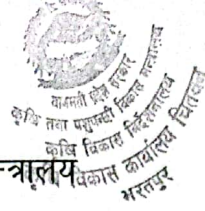 बागमती प्रदेश सरकार
कृषि तथा पशुपन्छी विकास मन्त्रालय
कृषि विकास निर्देशनालय
कृषि विकास कार्यालय चितवन
भरतपुर
न्त्रालय